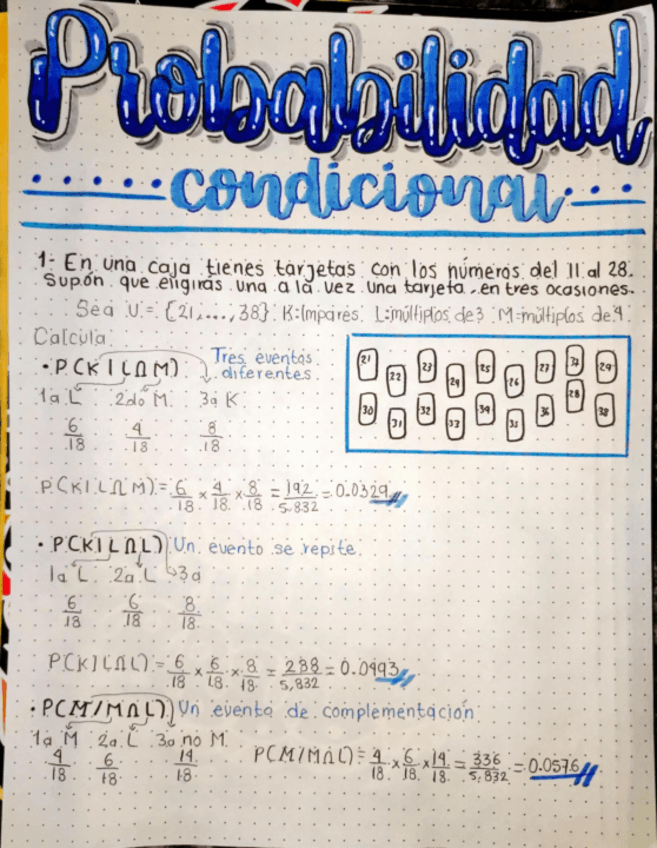 Probabilidad
condicional
1- En una caja tienes tarjetas con los números del 11 al 28.
Supón que eligiras una a la vez una tarjeta en tres ocasiones.
Sea U = {21,...,38} K:Impares L:múltiplos de 3 M=múltiplos de 4
Calcula
• P(K|L∩M) Tres eventos
diferentes
1a L 2do M 3a K
6/18 4/18 8/18
21 22 23 24 25 26 27 29
30 31 32 33 34 35 36 28 38
P(K|L∩M) = 6/18 × 4/18 × 8/18 = 192/5,832 = 0.0329
• P(K|L∩L) Un evento se repite
1a L 2a L 3a
6/18 6/18 8/18
P(K|L∩L) = 6/18 × 6/18 × 8/18 = 288/5,832 = 0.0493
• P(M/M∩L) Un evento de complementación
1a M 2a L 3a no M
4/18 6/18 14/18 P(M/M∩L) = 4/18 × 6/18 × 14/18 = 336/5,832 = 0.0576